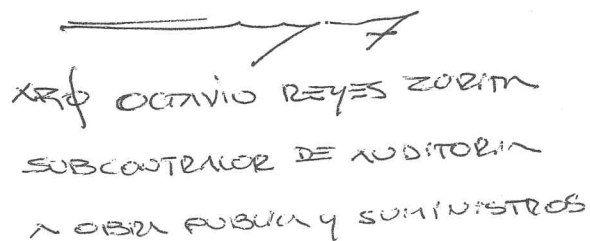 ARQ OCTAVIO REYES ZORITA
SUBCONTRALOR DE AUDITORIA
A OBRA PUBLICA Y SUMINISTROS